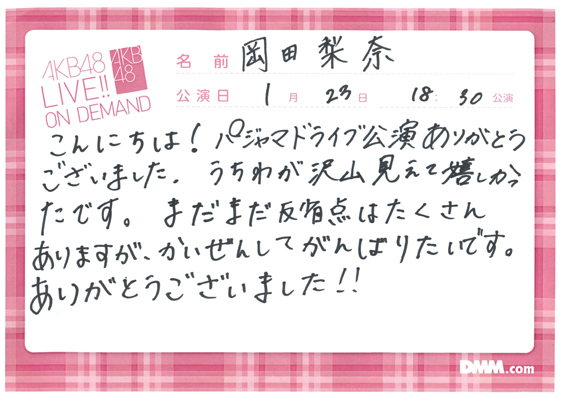 AKB48
LIVE!!
ON DEMAND
AKB
48
名前 岡田梨奈
公演日 1月23日 18:30公演
こんにちは！パジャマドライブ公演ありがとう
ございました。うちわが沢山見えて嬉しかっ
たです。まだまだ反省点はたくさん
ありますが、かいぜんしてがんばりたいです。
ありがとうございました!!
DMM.com